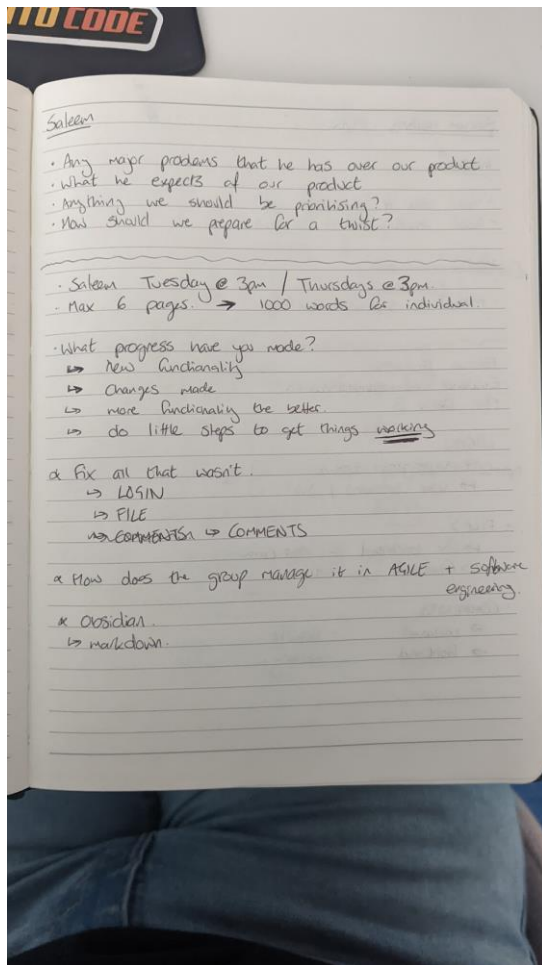 INTO CODE
Saleem
· Any major problems that he has over our product
· What he expects of our product
· Anything we should be prioritising?
· How should we prepare for a twist?
· Saleem Tuesday @ 3pm / Thursdays @ 3pm.
· Max 6 pages. → 1000 words for individual.
· What progress have you made?
↳ new functionality
↳ changes made
↳ more functionality the better.
↳ do little steps to get things working
* Fix all that wasn't.
↳ LOGIN
↳ FILE
↳ COMMENTS ↳ COMMENTS
* How does the group manage it in AGILE + software
engineering.
* Obsidian.
↳ markdown.